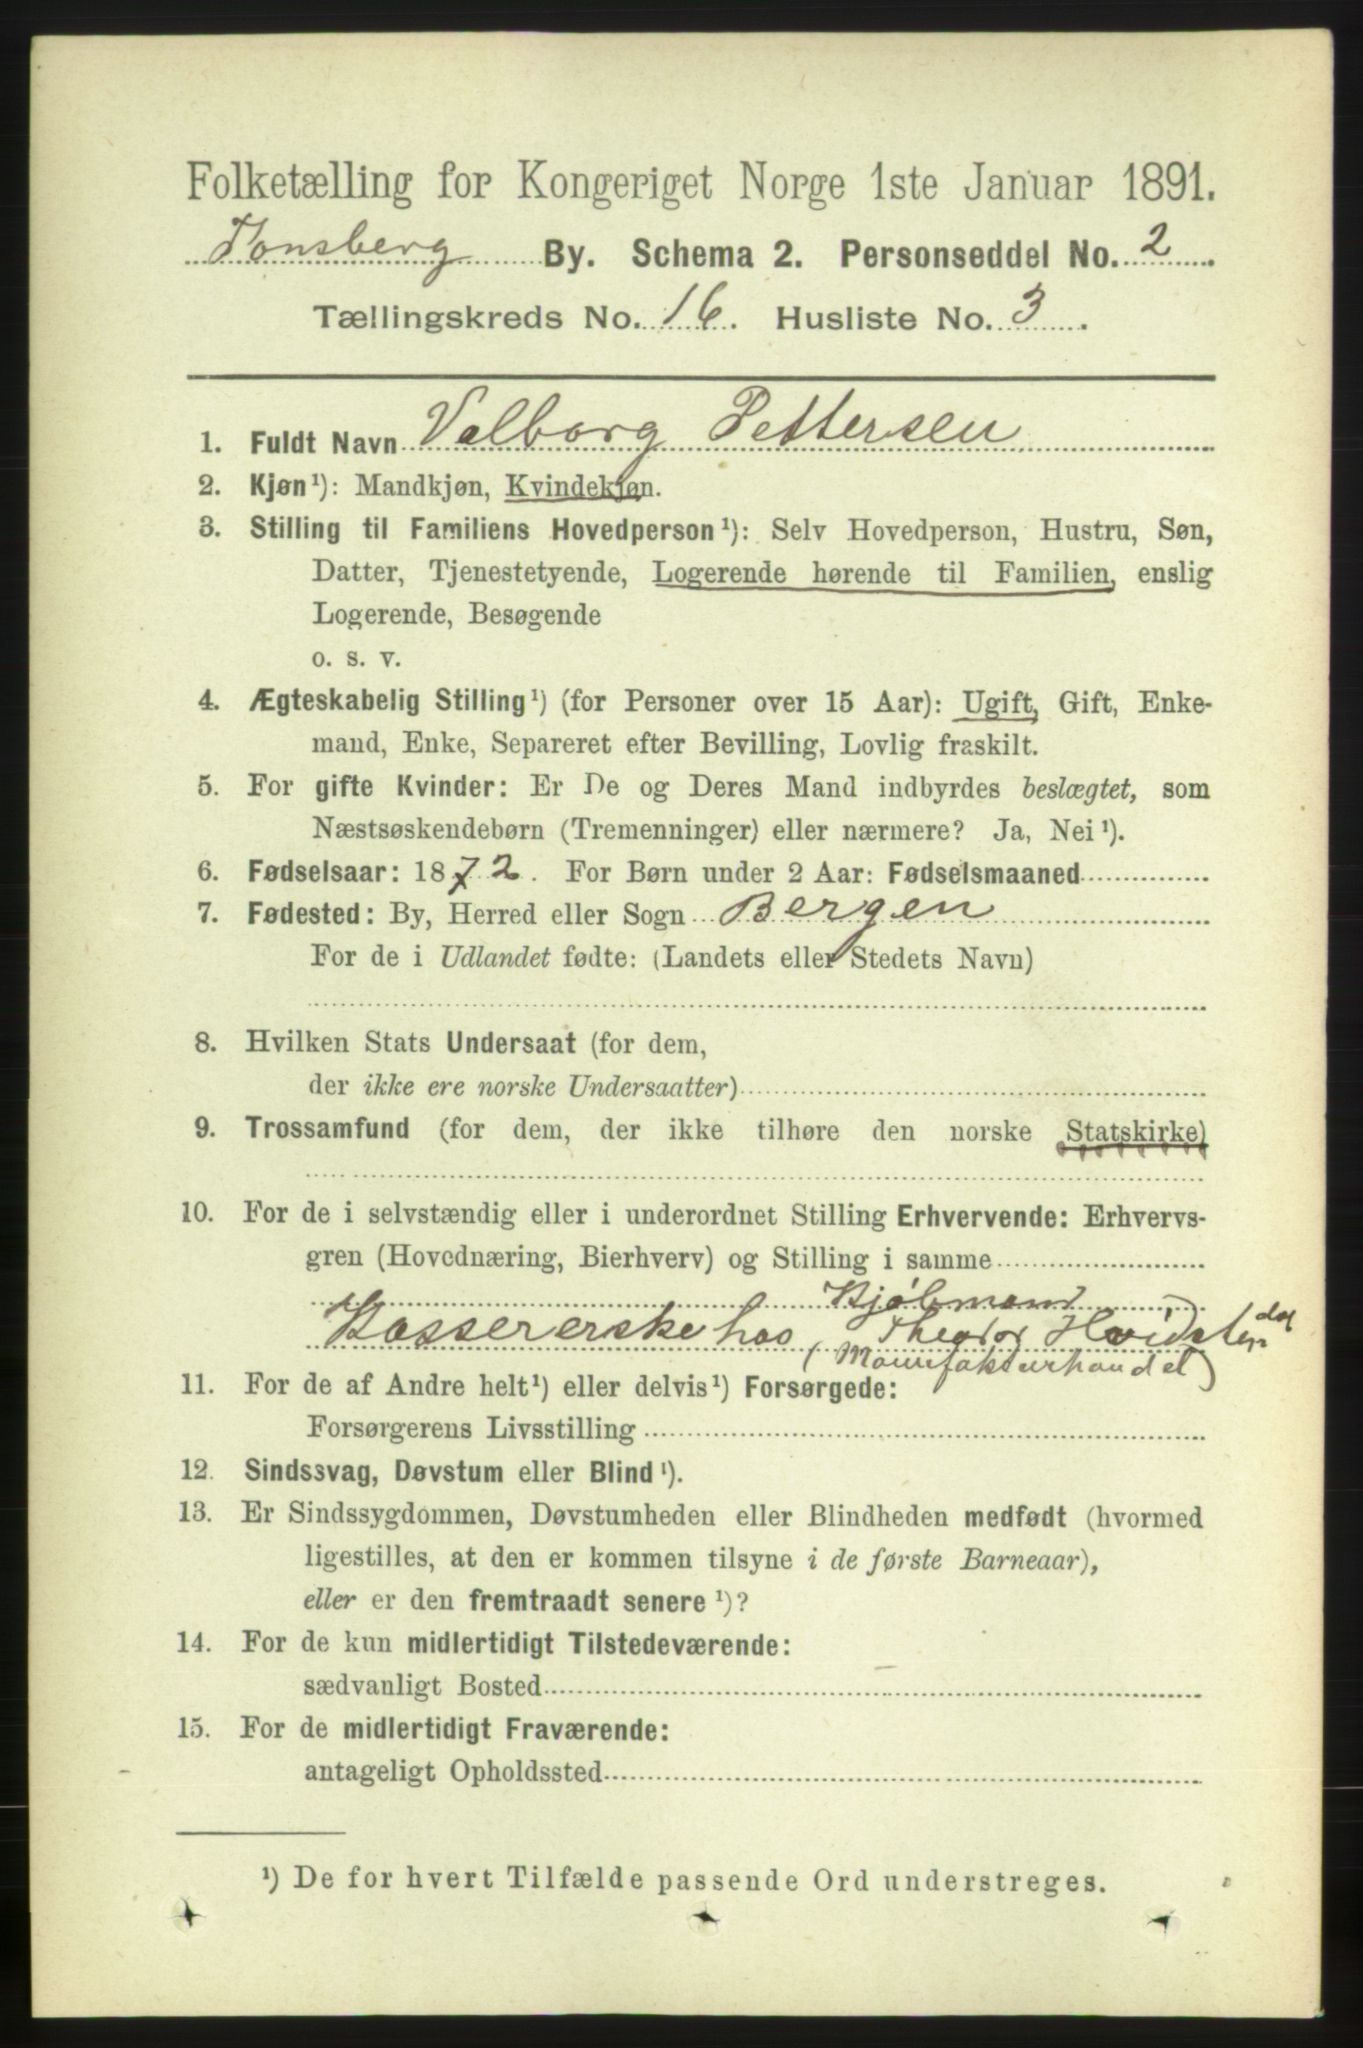 Folketælling for Kongeriget Norge 1ste Januar 1891.
Tønsberg By. Schema 2. Personseddel No. 2.
Tællingskreds No. 16. Husliste No. 3.
1. Fuldt Navn Valborg Pettersen
2. Kjøn¹): Mandkjøn, Kvindekjøn.
3. Stilling til Familiens Hovedperson¹): Selv Hovedperson, Hustru, Søn,
Datter, Tjenestetyende, Logerende hørende til Familien, enslig
Logerende, Besøgende
o. s. v.
4. Ægteskabelig Stilling¹) (for Personer over 15 Aar): Ugift, Gift, Enke-
mand, Enke, Separeret efter Bevilling, Lovlig fraskilt.
5. For gifte Kvinder: Er De og Deres Mand indbyrdes beslægtet, som
Næstsøskendebørn (Tremenninger) eller nærmere? Ja, Nei¹).
6. Fødselsaar: 1872. For Børn under 2 Aar: Fødselsmaaned
7. Fødested: By, Herred eller Sogn Bergen
For de i Udlandet fødte: (Landets eller Stedets Navn)
8. Hvilken Stats Undersaat (for dem,
der ikke ere norske Undersaatter)
9. Trossamfund (for dem, der ikke tilhøre den norske Statskirke)
10. For de i selvstændig eller i underordnet Stilling Erhvervende: Erhvervs-
gren (Hovednæring, Bierhverv) og Stilling i samme
Kjøbmand
Kassererske hos Theodor Hvidsten
(Manufakturhandel)
11. For de af Andre helt¹) eller delvis¹) Forsørgede:
Forsørgerens Livsstilling
12. Sindssvag, Døvstum eller Blind¹).
13. Er Sindssygdommen, Døvstumheden eller Blindheden medfødt (hvormed
ligestilles, at den er kommen tilsyne i de første Barneaar),
eller er den fremtraadt senere¹)?
14. For de kun midlertidigt Tilstedeværende:
sædvanligt Bosted
15. For de midlertidigt Fraværende:
antageligt Opholdssted
¹) De for hvert Tilfælde passende Ord understreges.